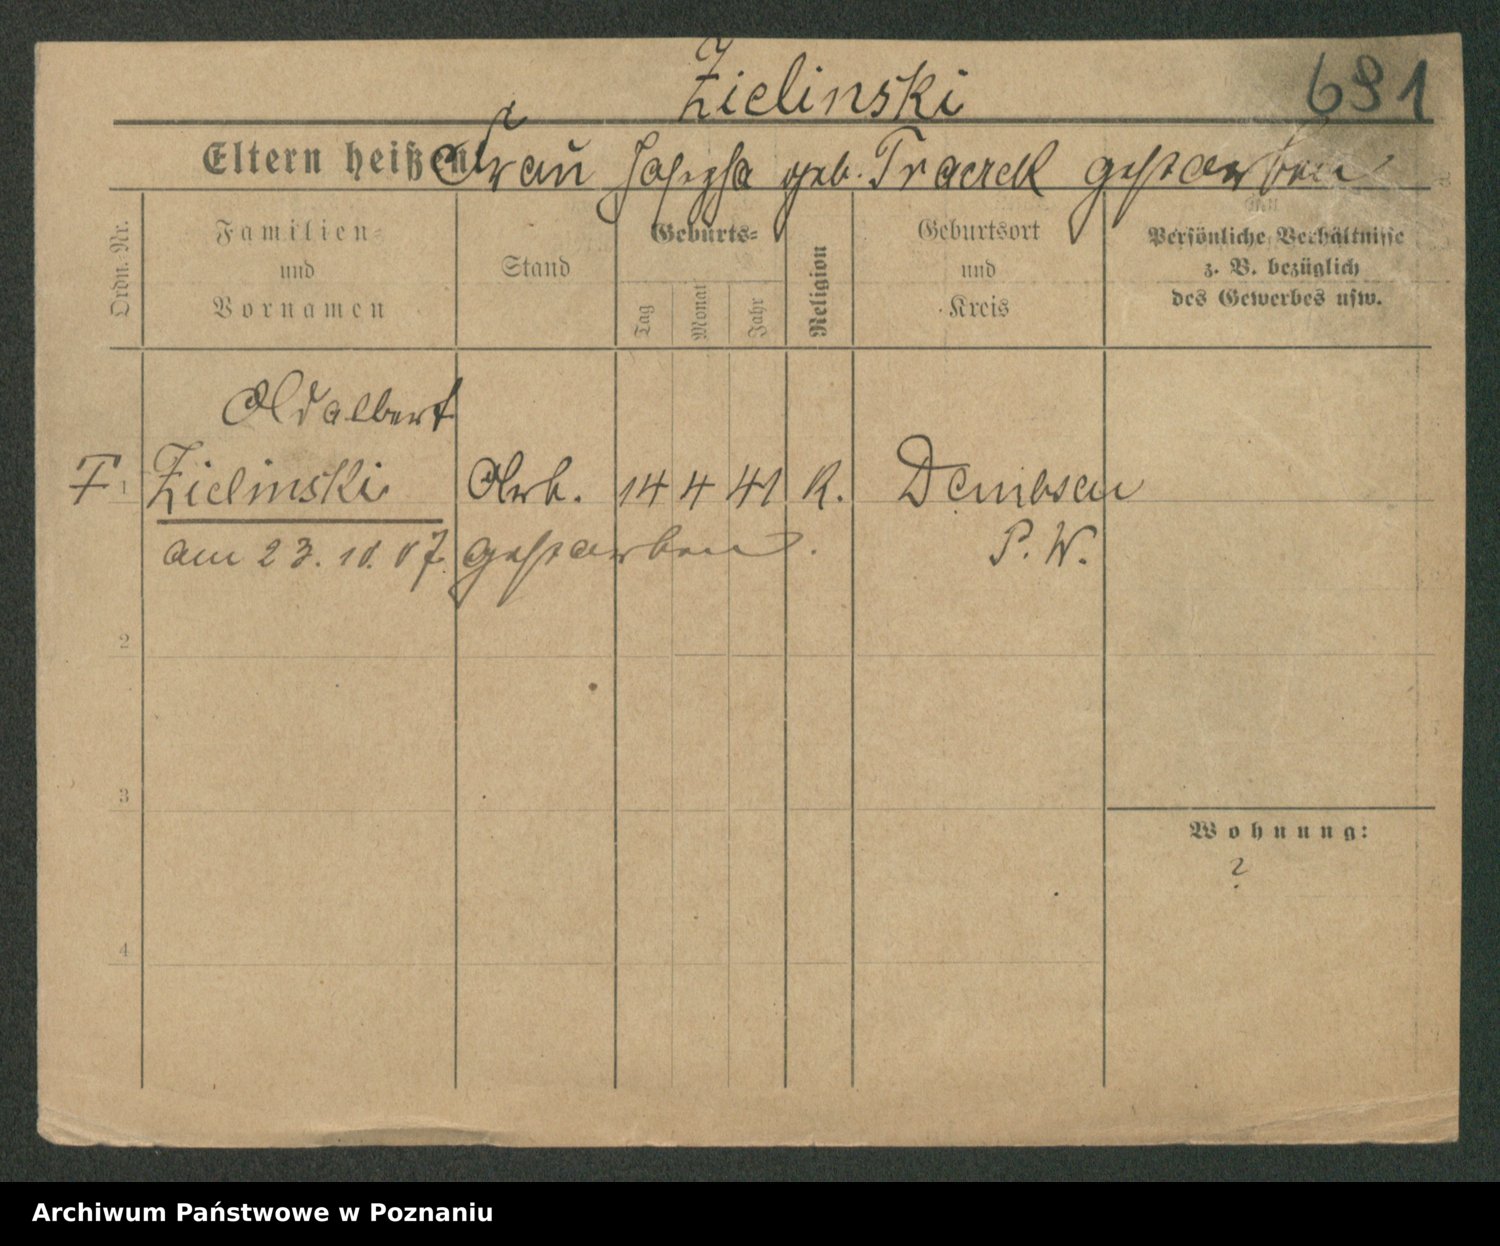 Zielinski 691
Eltern heißen
Frau Josepha geb. gestorben
Ordn. Nr.
Familien-
und
Vornamen
Stand
Geburts-
Tag
Monat
Jahr
Religion
Geburtsort
und
Kreis
Persönliche Verhältnisse
z. B. bezüglich
des Gewerbes usw.
Adalbert
1 Zielinski Arb. 14 4 41 K. Dembsen
am 23. 10. 07. gestorben. P. W.
2
3
Wohnung:
?
4
Archiwum Państwowe w Poznaniu